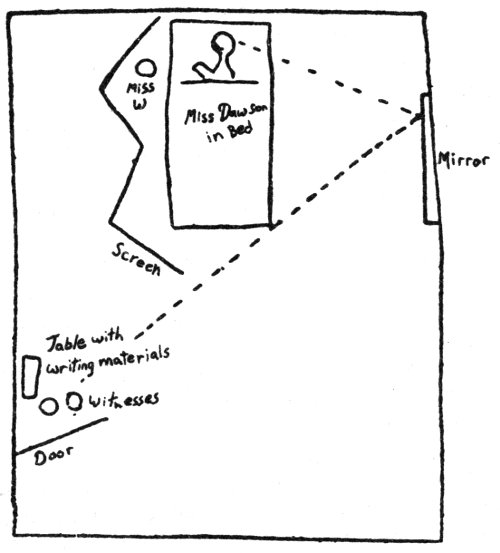 Miss
W
Miss Dawson
in Bed
Mirror
Screen
Table with
writing materials
Witnesses
Door